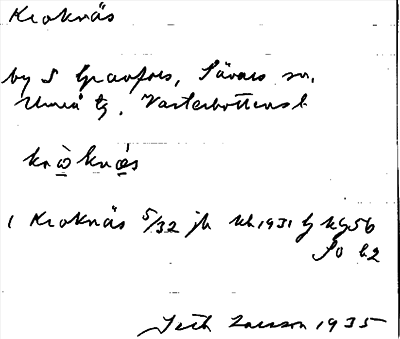 Kroknäs
by S Granfors, Sävars sn,
Umeå tg, Västerbottens l
kròknä́s
1 Kroknäs 5/32 jb kh 1931 bg kg 56
So b2
Seth Larsson 1935